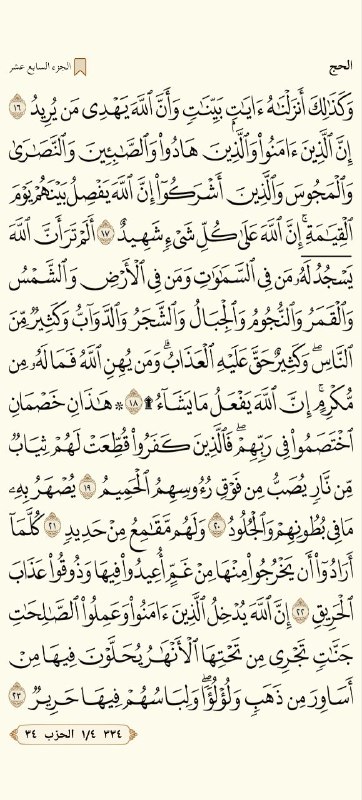 الحج الجزء السابع عشر
وَكَذَٰلِكَ أَنزَلْنَٰهُ ءَايَٰتٍۭ بَيِّنَٰتٍ وَأَنَّ ٱللَّهَ يَهْدِى مَن يُرِيدُ ١٦
إِنَّ ٱلَّذِينَ ءَامَنُوا۟ وَٱلَّذِينَ هَادُوا۟ وَٱلصَّٰبِـِٔينَ وَٱلنَّصَٰرَىٰ
وَٱلْمَجُوسَ وَٱلَّذِينَ أَشْرَكُوٓا۟ إِنَّ ٱللَّهَ يَفْصِلُ بَيْنَهُمْ يَوْمَ
ٱلْقِيَٰمَةِ ۚ إِنَّ ٱللَّهَ عَلَىٰ كُلِّ شَىْءٍ شَهِيدٌ ١٧ أَلَمْ تَرَ أَنَّ ٱللَّهَ
يَسْجُدُ لَهُۥ مَن فِى ٱلسَّمَٰوَٰتِ وَمَن فِى ٱلْأَرْضِ وَٱلشَّمْسُ
وَٱلْقَمَرُ وَٱلنُّجُومُ وَٱلْجِبَالُ وَٱلشَّجَرُ وَٱلدَّوَآبُّ وَكَثِيرٌ مِّنَ
ٱلنَّاسِ ۖ وَكَثِيرٌ حَقَّ عَلَيْهِ ٱلْعَذَابُ ۗ وَمَن يُهِنِ ٱللَّهُ فَمَا لَهُۥ مِن
مُّكْرِمٍ ۚ إِنَّ ٱللَّهَ يَفْعَلُ مَا يَشَآءُ ۩ ١٨ ۞ هَٰذَانِ خَصْمَانِ
ٱخْتَصَمُوا۟ فِى رَبِّهِمْ ۖ فَٱلَّذِينَ كَفَرُوا۟ قُطِّعَتْ لَهُمْ ثِيَابٌ
مِّن نَّارٍ يُصَبُّ مِن فَوْقِ رُءُوسِهِمُ ٱلْحَمِيمُ ١٩ يُصْهَرُ بِهِۦ
مَا فِى بُطُونِهِمْ وَٱلْجُلُودُ ٢٠ وَلَهُم مَّقَٰمِعُ مِنْ حَدِيدٍ ٢١ كُلَّمَآ
أَرَادُوٓا۟ أَن يَخْرُجُوا۟ مِنْهَا مِنْ غَمٍّ أُعِيدُوا۟ فِيهَا وَذُوقُوا۟ عَذَابَ
ٱلْحَرِيقِ ٢٢ إِنَّ ٱللَّهَ يُدْخِلُ ٱلَّذِينَ ءَامَنُوا۟ وَعَمِلُوا۟ ٱلصَّٰلِحَٰتِ
جَنَّٰتٍ تَجْرِى مِن تَحْتِهَا ٱلْأَنْهَٰرُ يُحَلَّوْنَ فِيهَا مِنْ
أَسَاوِرَ مِن ذَهَبٍ وَلُؤْلُؤًا ۖ وَلِبَاسُهُمْ فِيهَا حَرِيرٌ ٢٣
٣٣٤ ١/٤ الحزب ٣٤